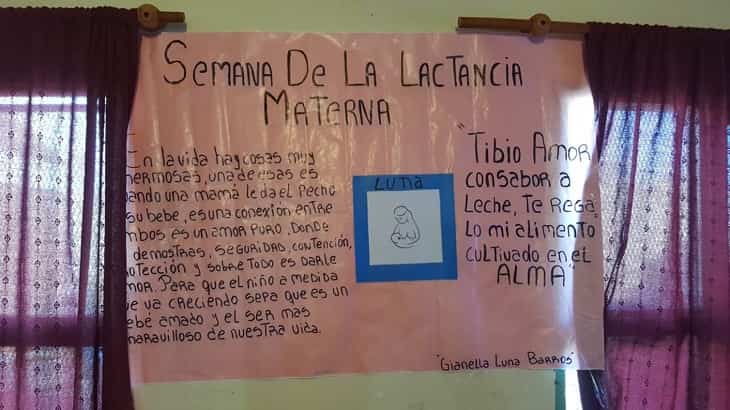 Semana De La Lactancia
Materna
En la vida hay cosas muy
hermosas, una de esas es
uando una mamá le da el pecho
su bebe, es una conexión entre
mbos es un amor puro, donde
demostras, seguridad, contención,
otección y sobre todo es darle
mor. Para que el niño a medida
e va creciendo sepa que es un
ebé amado y el ser mas
maravilloso de nuestra vida.
Luna
"Tibio Amor
con sabor a
Leche, Te rega
lo mi alimento
cultivado en el
ALMA"
"Gianella Luna Barrios"